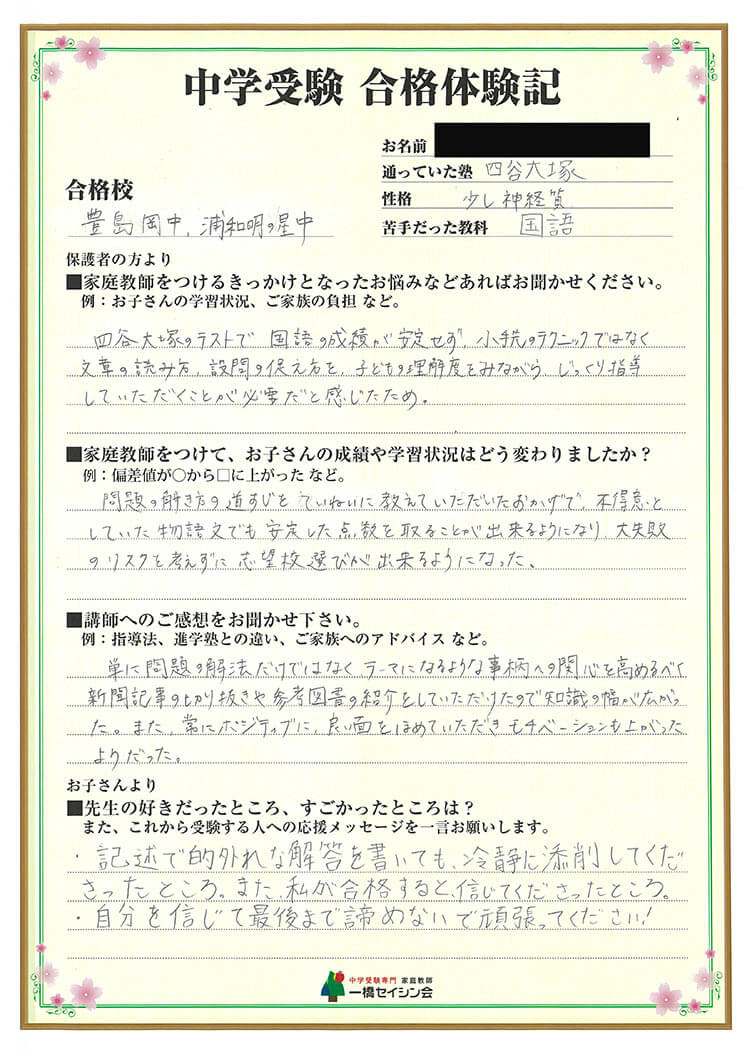 中学受験 合格体験記
お名前
通っていた塾 四谷大塚
合格校
性格 少し神経質
豊島岡中、浦和明の星中
苦手だった教科 国語
保護者の方より
■家庭教師をつけるきっかけとなったお悩みなどあればお聞かせください。
例：お子さんの学習状況、ご家族の負担 など。
四谷大塚のテストで 国語の成績が安定せず、小手先のテクニックではなく
文章の読み方、設問の捉え方を、子どもの理解度をみながら、じっくり指導
していただくことが必要だと感じたため。
■家庭教師をつけて、お子さんの成績や学習状況はどう変わりましたか？
例：偏差値が○から□に上がった など。
問題の解き方の道すじを ていねいに教えていただいたおかげで、不得意と
していた物語文でも 安定した点数を取ることが出来るようになり、大失敗
のリスクを考えずに 志望校選びが出来るようになった。
■講師へのご感想をお聞かせ下さい。
例：指導法、進学塾との違い、ご家族へのアドバイス など。
単に問題の解法だけではなく、テーマになるような事柄への関心を高めるべく
新聞記事の切り抜きや参考図書の紹介をしていただけたので知識の幅が広がっ
た。また、常にポジティブに、良い面をほめていただきモチベーションも上がった
ようだった。
お子さんより
■先生の好きだったところ、すごかったところは？
また、これから受験する人への応援メッセージを一言お願いします。
・記述で的外れな解答を書いても、冷静に添削してくだ
さったところ。また、私が合格すると、信じてくださったところ。
・自分を信じて最後まで諦めないで頑張ってください！
中学受験専門 家庭教師
一橋セイシン会